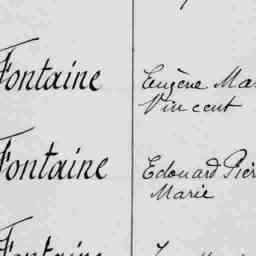 Fontaine Eugène Ma
Vincent
Fontaine Edouard Pier
Marie
Fontaine